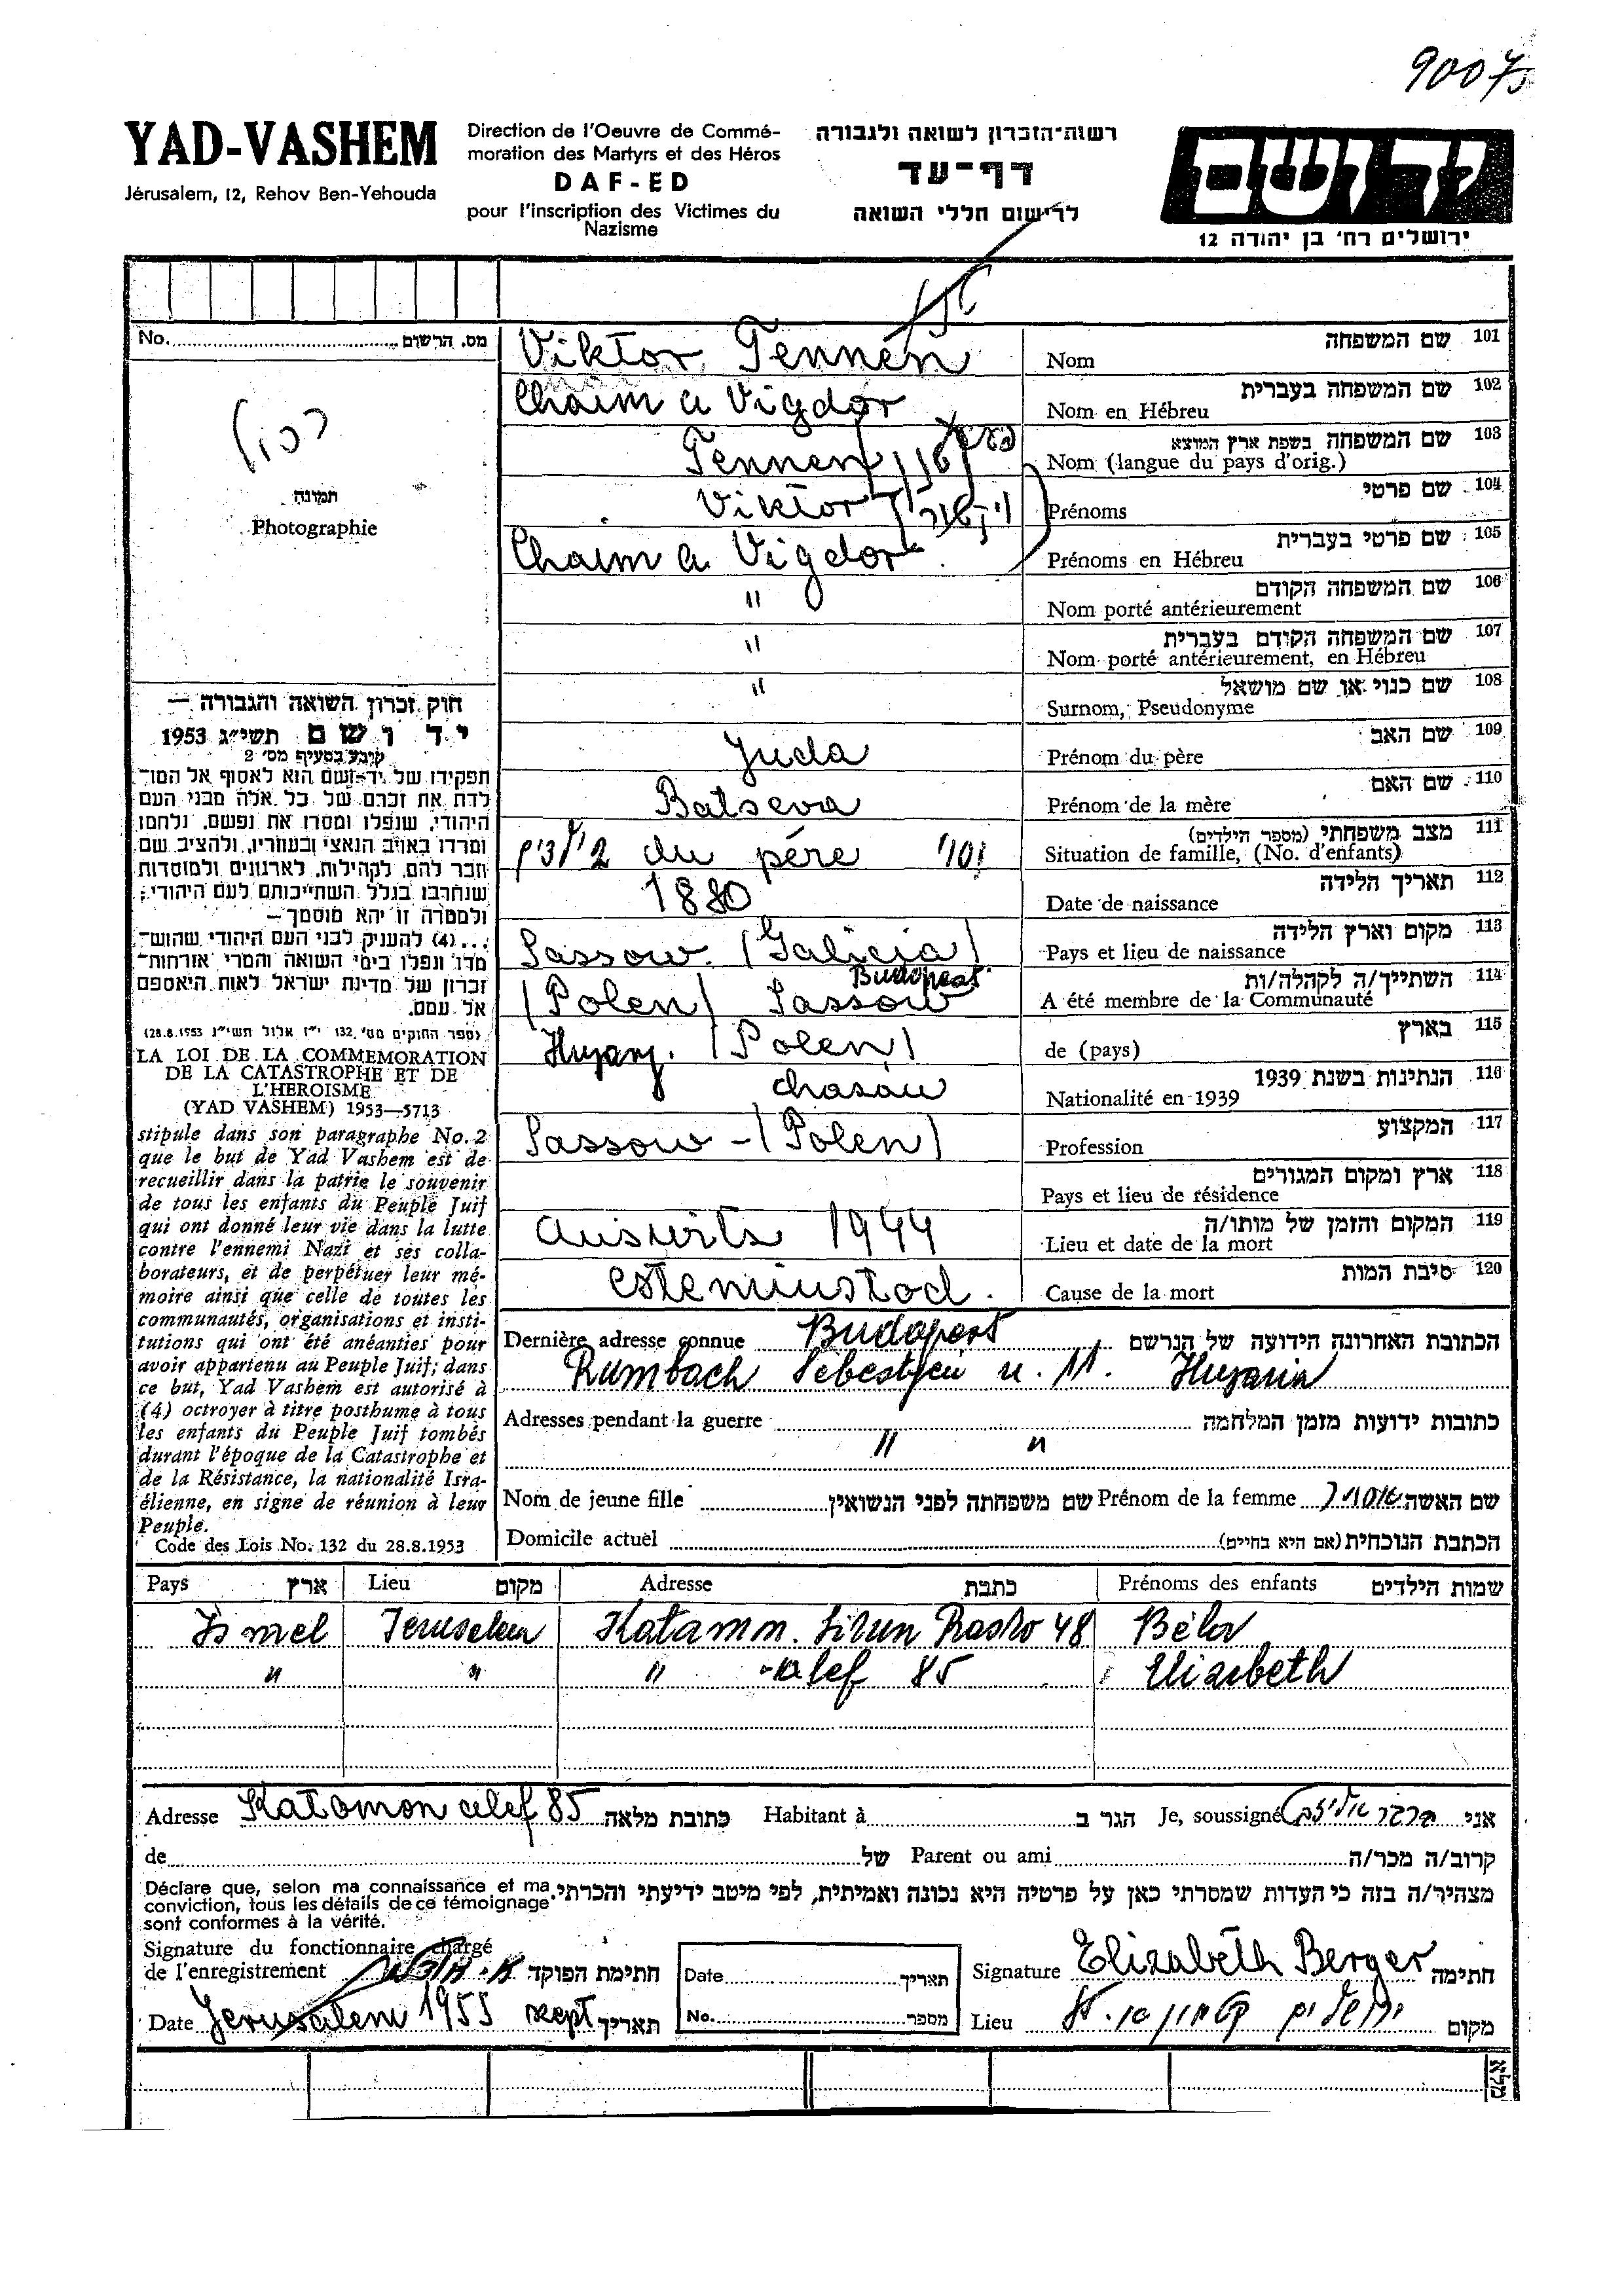 90075
YAD-VASHEM
Jérusalem, 12, Rehov Ben-Yehouda
Direction de l'Oeuvre de Commé-
moration des Martyrs et des Héros
DAF-ED
pour l'inscription des Victimes du
Nazisme
רשות-הזכרון לשואה ולגבורה
דף-עד
לרישום חללי השואה
יד ושם
ירושלים רח' בן יהודה 12
No. מס. הרשום
תמונה
Photographie
Viktor Tennen
101 שם המשפחה
Nom
Chaim a Vigdor
102 שם המשפחה בעברית
Nom en Hébreu
Tennen
103 שם המשפחה בשפת ארץ המוצא
Nom (langue du pays d'orig.)
Viktor ויקטור
104 שם פרטי
Prénoms
Chaim a Vigdor
105 שם פרטי בעברית
Prénoms en Hébreu
"
106 שם המשפחה הקודם
Nom porté antérieurement
"
107 שם המשפחה הקודם בעברית
Nom porté antérieurement, en Hébreu
"
108 שם כנוי או שם מושאל
Surnom, Pseudonyme
Juda
109 שם האב
Prénom du père
Batseva
110 שם האם
Prénom de la mère
נשוי du pére 2 ילדים
111 מצב משפחתי (מספר הילדים)
Situation de famille, (No. d'enfants)
1880
112 תאריך הלידה
Date de naissance
Sassow. (Galicia)
113 מקום וארץ הלידה
Pays et lieu de naissance
Budapest
(Polen) Sassow
114 השתייך/ה לקהלה/ות
A été membre de la Communauté
Hugary. (Polen)
115 בארץ
de (pays)
chasau
116 הנתינות בשנת 1939
Nationalité en 1939
Sassow - (Polen)
117 המקצוע
Profession
118 ארץ ומקום המגורים
Pays et lieu de résidence
Ausvits 1944
119 המקום והזמן של מותו/ה
Lieu et date de la mort
esteminstod.
120 סיבת המות
Cause de la mort
חוק זכרון השואה והגבורה —
יד ושם תשי"ג 1953
קובע בסעיף מס' 2
תפקידו של יד-ושם הוא לאסוף אל המו-
לדת את זכרם של כל אלה מבני העם
היהודי, שנפלו ומסרו את נפשם, נלחמו
ומרדו באויב הנאצי ובעוזריו, ולהציב שם
וזכר להם, לקהילות, לארגונים ולמוסדות
שנחרבו בגלל השתייכותם לעם היהודי;
ולמטרה זו יהא מוסמך —
...(4) להעניק לבני העם היהודי שהוש-
מדו ונפלו בימי השואה והמרי אזרחות-
זכרון של מדינת ישראל לאות היאספם
אל עמם.
(ספר החוקים מס' 132, י"ז אלול תשי"ג 28.8.1953)
LA LOI DE LA COMMEMORATION
DE LA CATASTROPHE ET DE
L'HEROISME
(YAD VASHEM) 1953—5713
stipule dans son paragraphe No. 2
que le but de Yad Vashem est de
recueillir dans la patrie le souvenir
de tous les enfants du Peuple Juif
qui ont donné leur vie dans la lutte
contre l'ennemi Nazi et ses colla-
borateurs, et de perpétuer leur mé-
moire ainsi que celle de toutes les
communautés, organisations et insti-
tutions qui ont été anéanties pour
avoir appartenu au Peuple Juif; dans
ce but, Yad Vashem est autorisé à
(4) octroyer à titre posthume à tous
les enfants du Peuple Juif tombés
durant l'époque de la Catastrophe et
de la Résistance, la nationalité Isra-
élienne, en signe de réunion à leur
Peuple.
Code des Lois No. 132 du 28.8.1953
Dernière adresse connue Budapest הכתובת האחרונה הידועה של הנרשם
Rumbach Sebestyen u. 11. Hugaria
Adresses pendant la guerre כתובות ידועות מזמן המלחמה
" "
Nom de jeune fille שם משפחתה לפני הנשואין Prénom de la femme שם האשה
Domicile actuel הכתבת הנוכחית (אם היא בחיים)
Pays ארץ Lieu מקום Adresse כתבת Prénoms des enfants שמות הילדים
Israel Jeruselem Katamm. Sikun Rasko 48 Béla
" " " alef 85 Elizabeth
Adresse Katamon alef 85 כתובת מלאה Habitant à הגר ב Je, soussigné ברגר אליזבט אני
de של Parent ou ami קרוב/ה מכר/ה
Déclare que, selon ma connaissance et ma
conviction, tous les détails de ce témoignage
sont conformes à la vérité.
מצהיר/ה בזה כי העדות שמסרתי כאן על פרטיה היא נכונה ואמיתית, לפי מיטב ידיעתי והכרתי.
Signature du fonctionnaire chargé
de l'enregistrement חתימת הפוקד
Date Jerusalem 1955 sept תאריך
Date תאריך
No. מספר
Signature Elizabeth Berger חתימה
Lieu ירושלים קטמון מקום